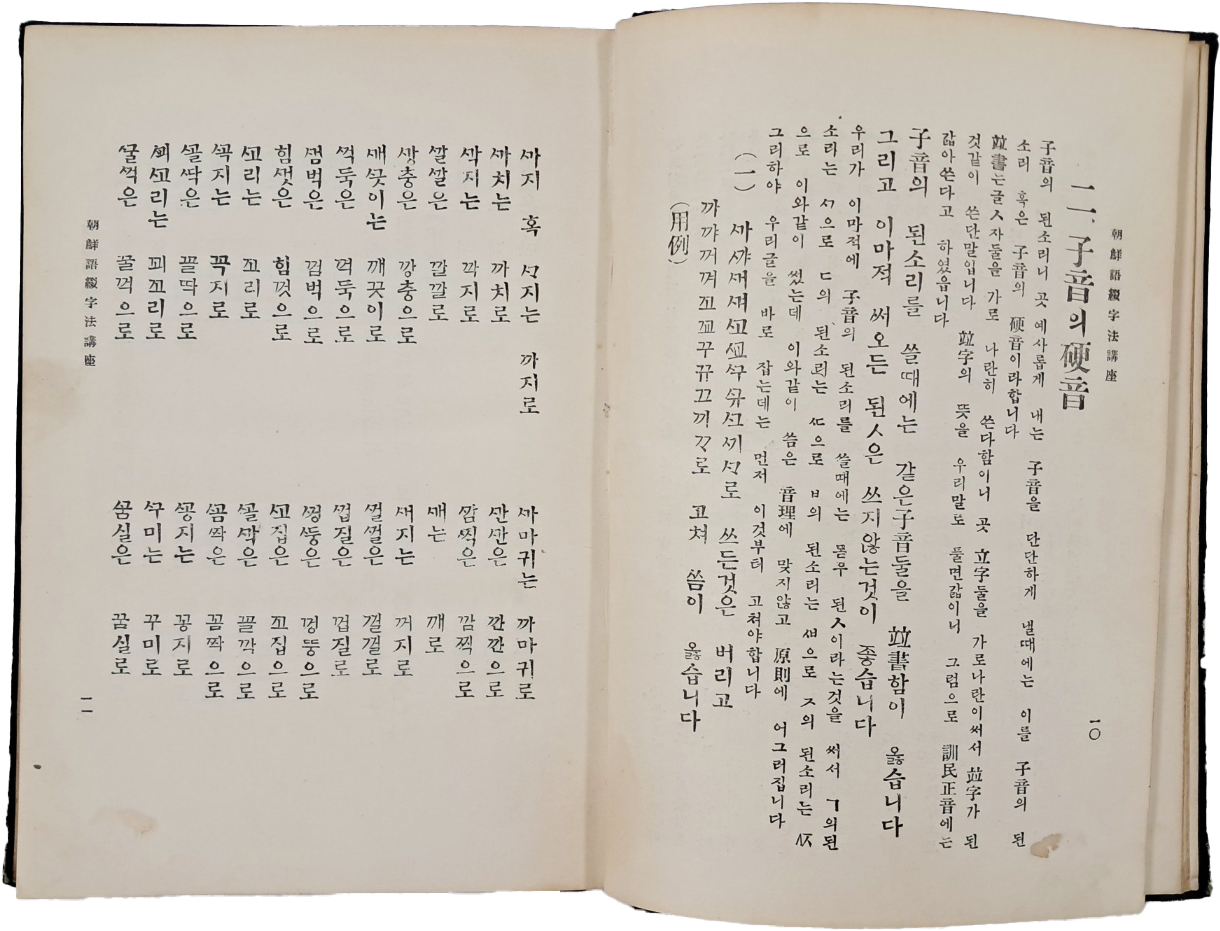 朝鮮語綴字法講座
一〇
二、子音의硬音
子音의 된소리니 곳 예사롭게 내는 子音을 단단하게 낼때에는 이를 子音의 된
소리 혹은 子音의 硬音이라합니다
竝書는글ㅅ자둘을 가로 나란히 쓴다함이니 곳 立字둘을 가로나란이써서 竝字가 된
것같이 쓴단말입니다 竝字의 뜻을 우리말로 풀면갋이니 그럼으로 訓民正音에는
갋아쓴다고 하였읍니다
子音의 된소리를 쓸때에는 같은子音둘을 竝書함이 옳습니다
그리고 이마적 써오든 된ㅅ은 쓰지않는것이 좋습니다
우리가 이마적에 子音의 된소리를 쓸때에는 몰우 된ㅅ이라는것을 써서 ㄱ의된
소리는 ㅺ으로 ㄷ의 된소리는 ㅼ으로 ㅂ의 된소리는 ㅽ으로 ㅈ의 된소리는 ㅾ
으로 이와같이 썼는데 이와같이 씀은 音理에 맞지않고 原則에 어그러집니다
그리하야 우리글을 바로 잡는데는 먼저 이것부터 고쳐야합니다
(一) ᄭᅡᄭᅣᄭᅥᄭᅧᄭᅩᄭᅭᄭᅮᄭᅲᄭᅳᄭᅵᄭᆞ로 쓰든것은 버리고
까꺄꺼껴꼬꾜꾸뀨끄끼ᄁᆞ로 고쳐 씀이 옳습니다
(用例)
ᄭᅡ지 혹 ᄭᆞ지는 까지로
ᄭᅡ치는 까치로
ᄭᅡᆨ지는 깍지로
ᄭᅡᆯᄭᅡᆯ은 깔깔로
ᄭᅡᆼ충은 깡충으로
ᄭᅢᄭᅩᆺ이는 깨꼿이로
ᄭᅥᆨ둑은 꺽둑으로
ᄭᅥᆷ벅은 껌벅으로
힘ᄭᅥᆺ은 힘껏으로
ᄭᅩ리는 꼬리로
ᄭᅩᆨ지는 꼭지로
ᄭᅩᆯ딱은 꼴딱으로
ᄭᅬᄭᅩ리는 꾀꼬리로
ᄭᅮᆯᄭᅥᆨ은 꿀꺽으로
ᄭᅡ마귀는 까마귀로
ᄭᅡᆫᄭᅡᆫ은 깐깐으로
ᄭᅡᆷ찍은 깜찍으로
ᄭᅢ는 깨로
ᄭᅥ지는 꺼지로
ᄭᅥᆯᄭᅥᆯ은 껄껄로
ᄭᅥᆸ질은 껍질로
ᄭᅥᆼ뚱은 껑뚱으로
ᄭᅩ집은 꼬집으로
ᄭᅩᆯᄭᅡᆨ은 꼴깍으로
ᄭᅩᆷ짝은 꼼짝으로
ᄭᅩᆼ지는 꽁지로
ᄭᅮ미는 꾸미로
ᄭᅮᆷ실은 꿈실로
朝鮮語綴字法講座
一一